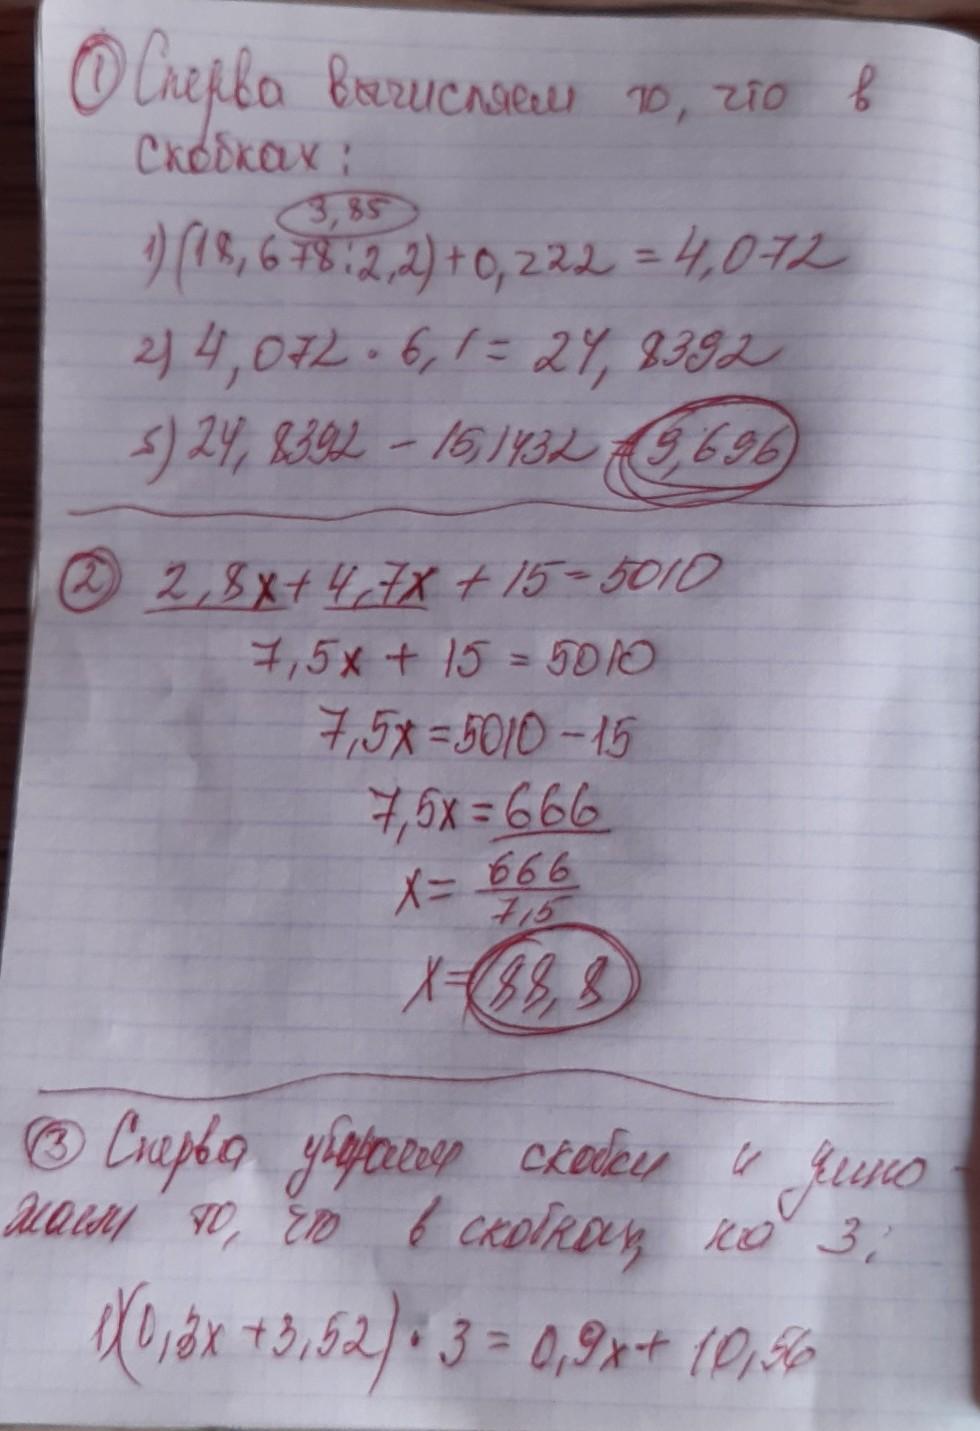 ① Сперва вычисляем то, что в
скобках:
3,85
1) (18,678:2,2)+0,222 = 4,072
2) 4,072 · 6,1 = 24,8392
3) 24,8392 - 15,1432 = 9,696
② 2,8x + 4,7x + 15 = 5010
7,5x + 15 = 5010
7,5x = 5010 - 15
7,5x = 666
x = 666/7,5
x = 88,8
③ Сперва убираем скобки и умно-
жаем то, что в скобках, на 3:
1) (0,3x + 3,52) · 3 = 0,9x + 10,56